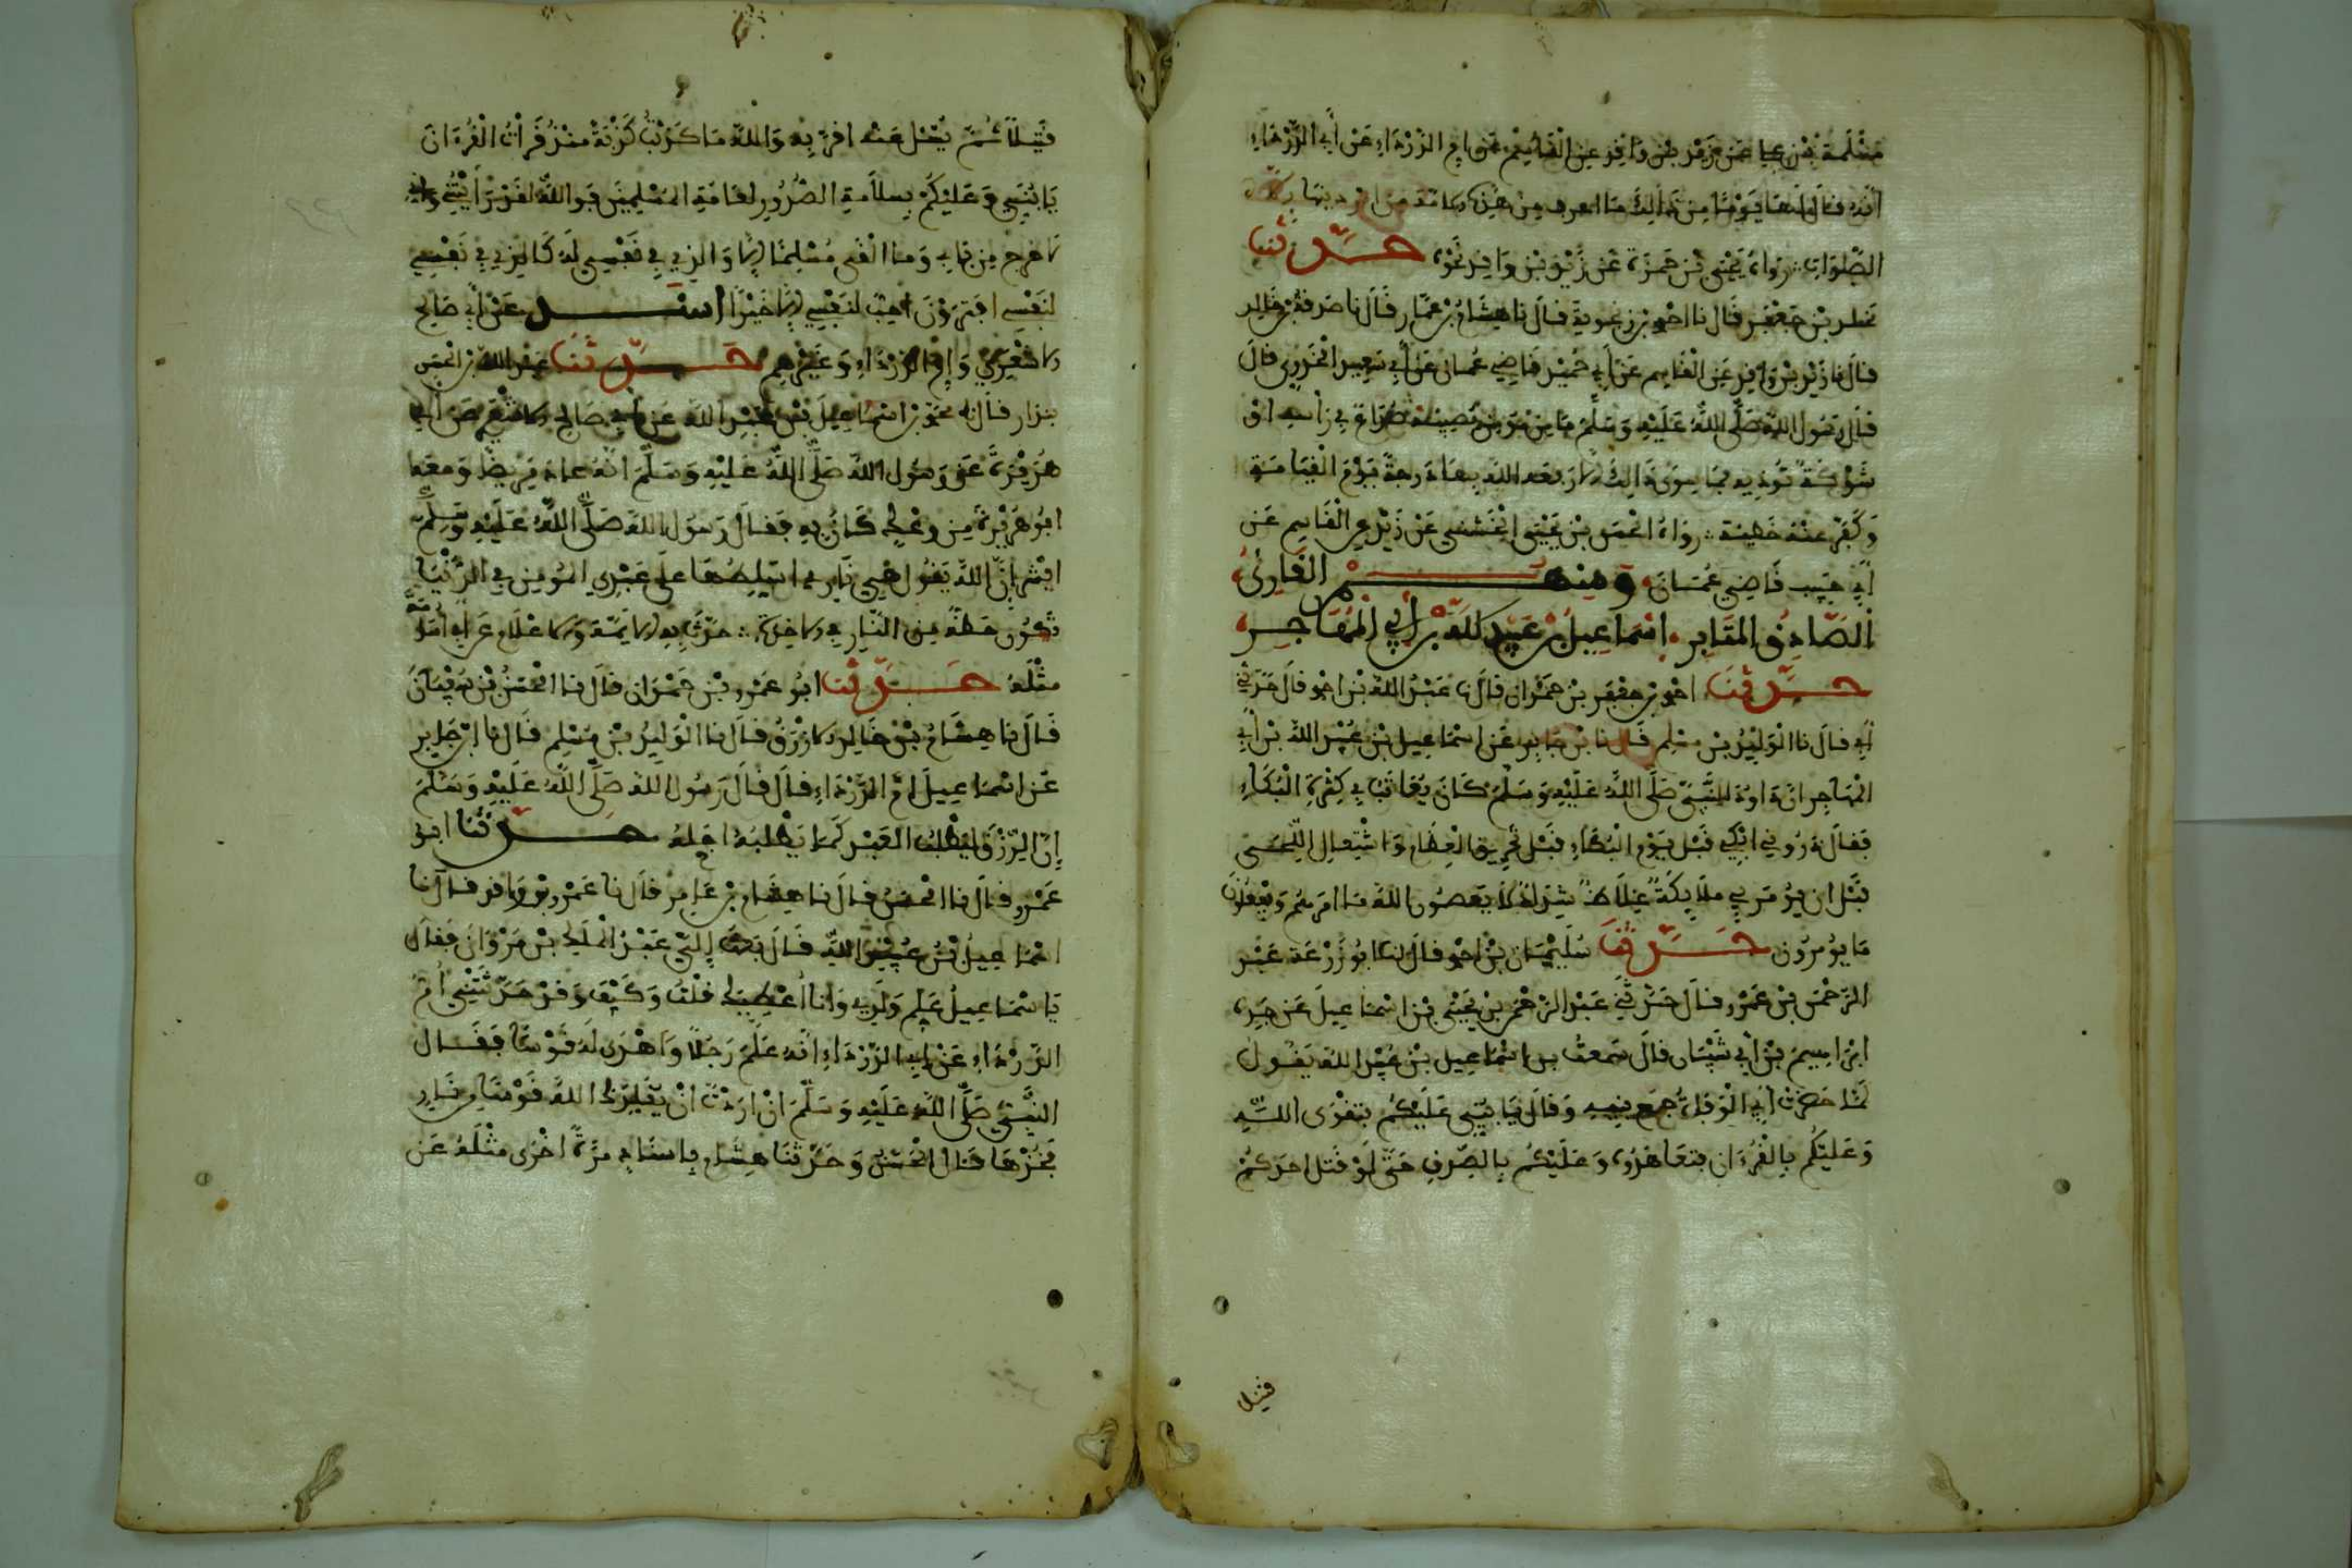 مسلمة بن علي عن زيد بن واقد عن القاسم عن ام الدرداء عن أبي الدرداء
أنه قال لنا يوما من ذلك ما اعرف من هذه الامة من امر دينها إلا
الصلوات رواه يحيى بن حمزة عن زيد بن واقد نحوه حدثنا
مخلد بن جعفر قال نا احمد بن زنجوية قال نا هشام بن عمار قال نا صدقة بن خالد
قال نا زيد بن واقد عن القاسم عن أبي حميد قاضي عمان عن أبي سعيد الخدري قال
قال رسول الله صلى الله عليه وسلم ما من مؤمن تصيبه صداع في رأسه او
شوكة تؤذيه مما سوى ذالك إلا رفعه الله بها درجة يوم القيامة
وكفر عنه خطيئة رواه الحسن بن يحيى الخشني عن زيد عن القاسم عن
أبي حبيب قاضي عمان ومنهم القارئ
الصادق المقابر اسماعيل بن عبيد الله بن أبي المهاجر
حدثنا احمد بن جعفر بن حمدان قال نا عبد الله بن احمد قال حدثني
أبي قال نا الوليد بن مسلم قال نا بن جابر عن اسماعيل بن عبيد الله بن أبي
المهاجر ان داود النبي صلى الله عليه وسلم كان يعاتب في كثرة البكاء
فقال ذروني ابكي قبل يوم البكاء قبل تحريق العظام واشتعال اللحى
قبل ان يؤمر بي ملايكة غلاظ شداد لا يعصون الله ما امرهم ويفعلون
ما يؤمرون حدثنا سليمان بن احمد قال نا ابو زرعة عبد
الرحمن بن عمرو قال حدثني عبد الرحمن بن يحيى بن اسماعيل عن جده
ابراهيم بن أبي شيبان قال سمعت بن اسماعيل بن عبيد الله يقول
لما حضرت أبي الوفاة جمع بنيه وقال يا بني عليكم بتقوى الله
وعليكم بالقرءان فتعاهدوه وعليكم بالصدق حتى لو قتل احدكم
قتيل
قتيلا ثم يسل عنه اقر به والله ما كذبت كذبة منذ قرأت القرءان
يا بني وعليكم بسلامة الصدور لعامة المسلمين فوالله لقد رأيتني واني
لا اخرج من بابي وما القى مسلما إلا والذي في نفسي له كالذي في نفسي
لنفسي افترون احب لنفسي إلا خيرا اسند عن أبي صالح
الاشعري وام الدرداء وغيرهم حدثنا عبد الله بن الحسن
بندار قال نا محمد بن اسماعيل بن عبيد الله عن أبي صالح الاشعري عن أبي
هريرة عن رسول الله صلى الله عليه وسلم انه عاد مريضا ومعه
ابو هريرة من وعك كان به فقال رسول الله صلى الله عليه وسلم
ابشر إن الله يقول هي ناري اسلطها على عبدي المومن في الدنيا
تكون حظه من النار في الاخرة حدث به الايمة والاعلام عن أبي اسامة
مثله حدثنا ابو عمرو بن حمدان قال نا الحسن بن سفيان
قال نا هشام بن خالد الازرق قال نا الوليد بن مسلم قال نا ابن جابر
عن اسماعيل ام الدرداء قال قال رسول الله صلى الله عليه وسلم
إن الرزق ليطلب العبد كما يطلبه اجله حدثنا ابو
عمرو قال نا الحسن قال نا هشام بن عامر قال نا عمرو بن واقد قال نا
اسماعيل بن عبيد الله قال بعث إلي عبد الملك بن مروان فقال
يا سماعيل علم ولدي وانا اعطيك قلت وكيف وقد حدثتني ام
الدرداء عن ابي الدرداء انه علم رجلا واهدى له قوسا فقال
النبي صلى الله عليه وسلم ان اردت ان يقلدك الله قوسا من نار
فخذها قال الحسن وحدثنا هشام باسناده مرة اخرى مثله عن